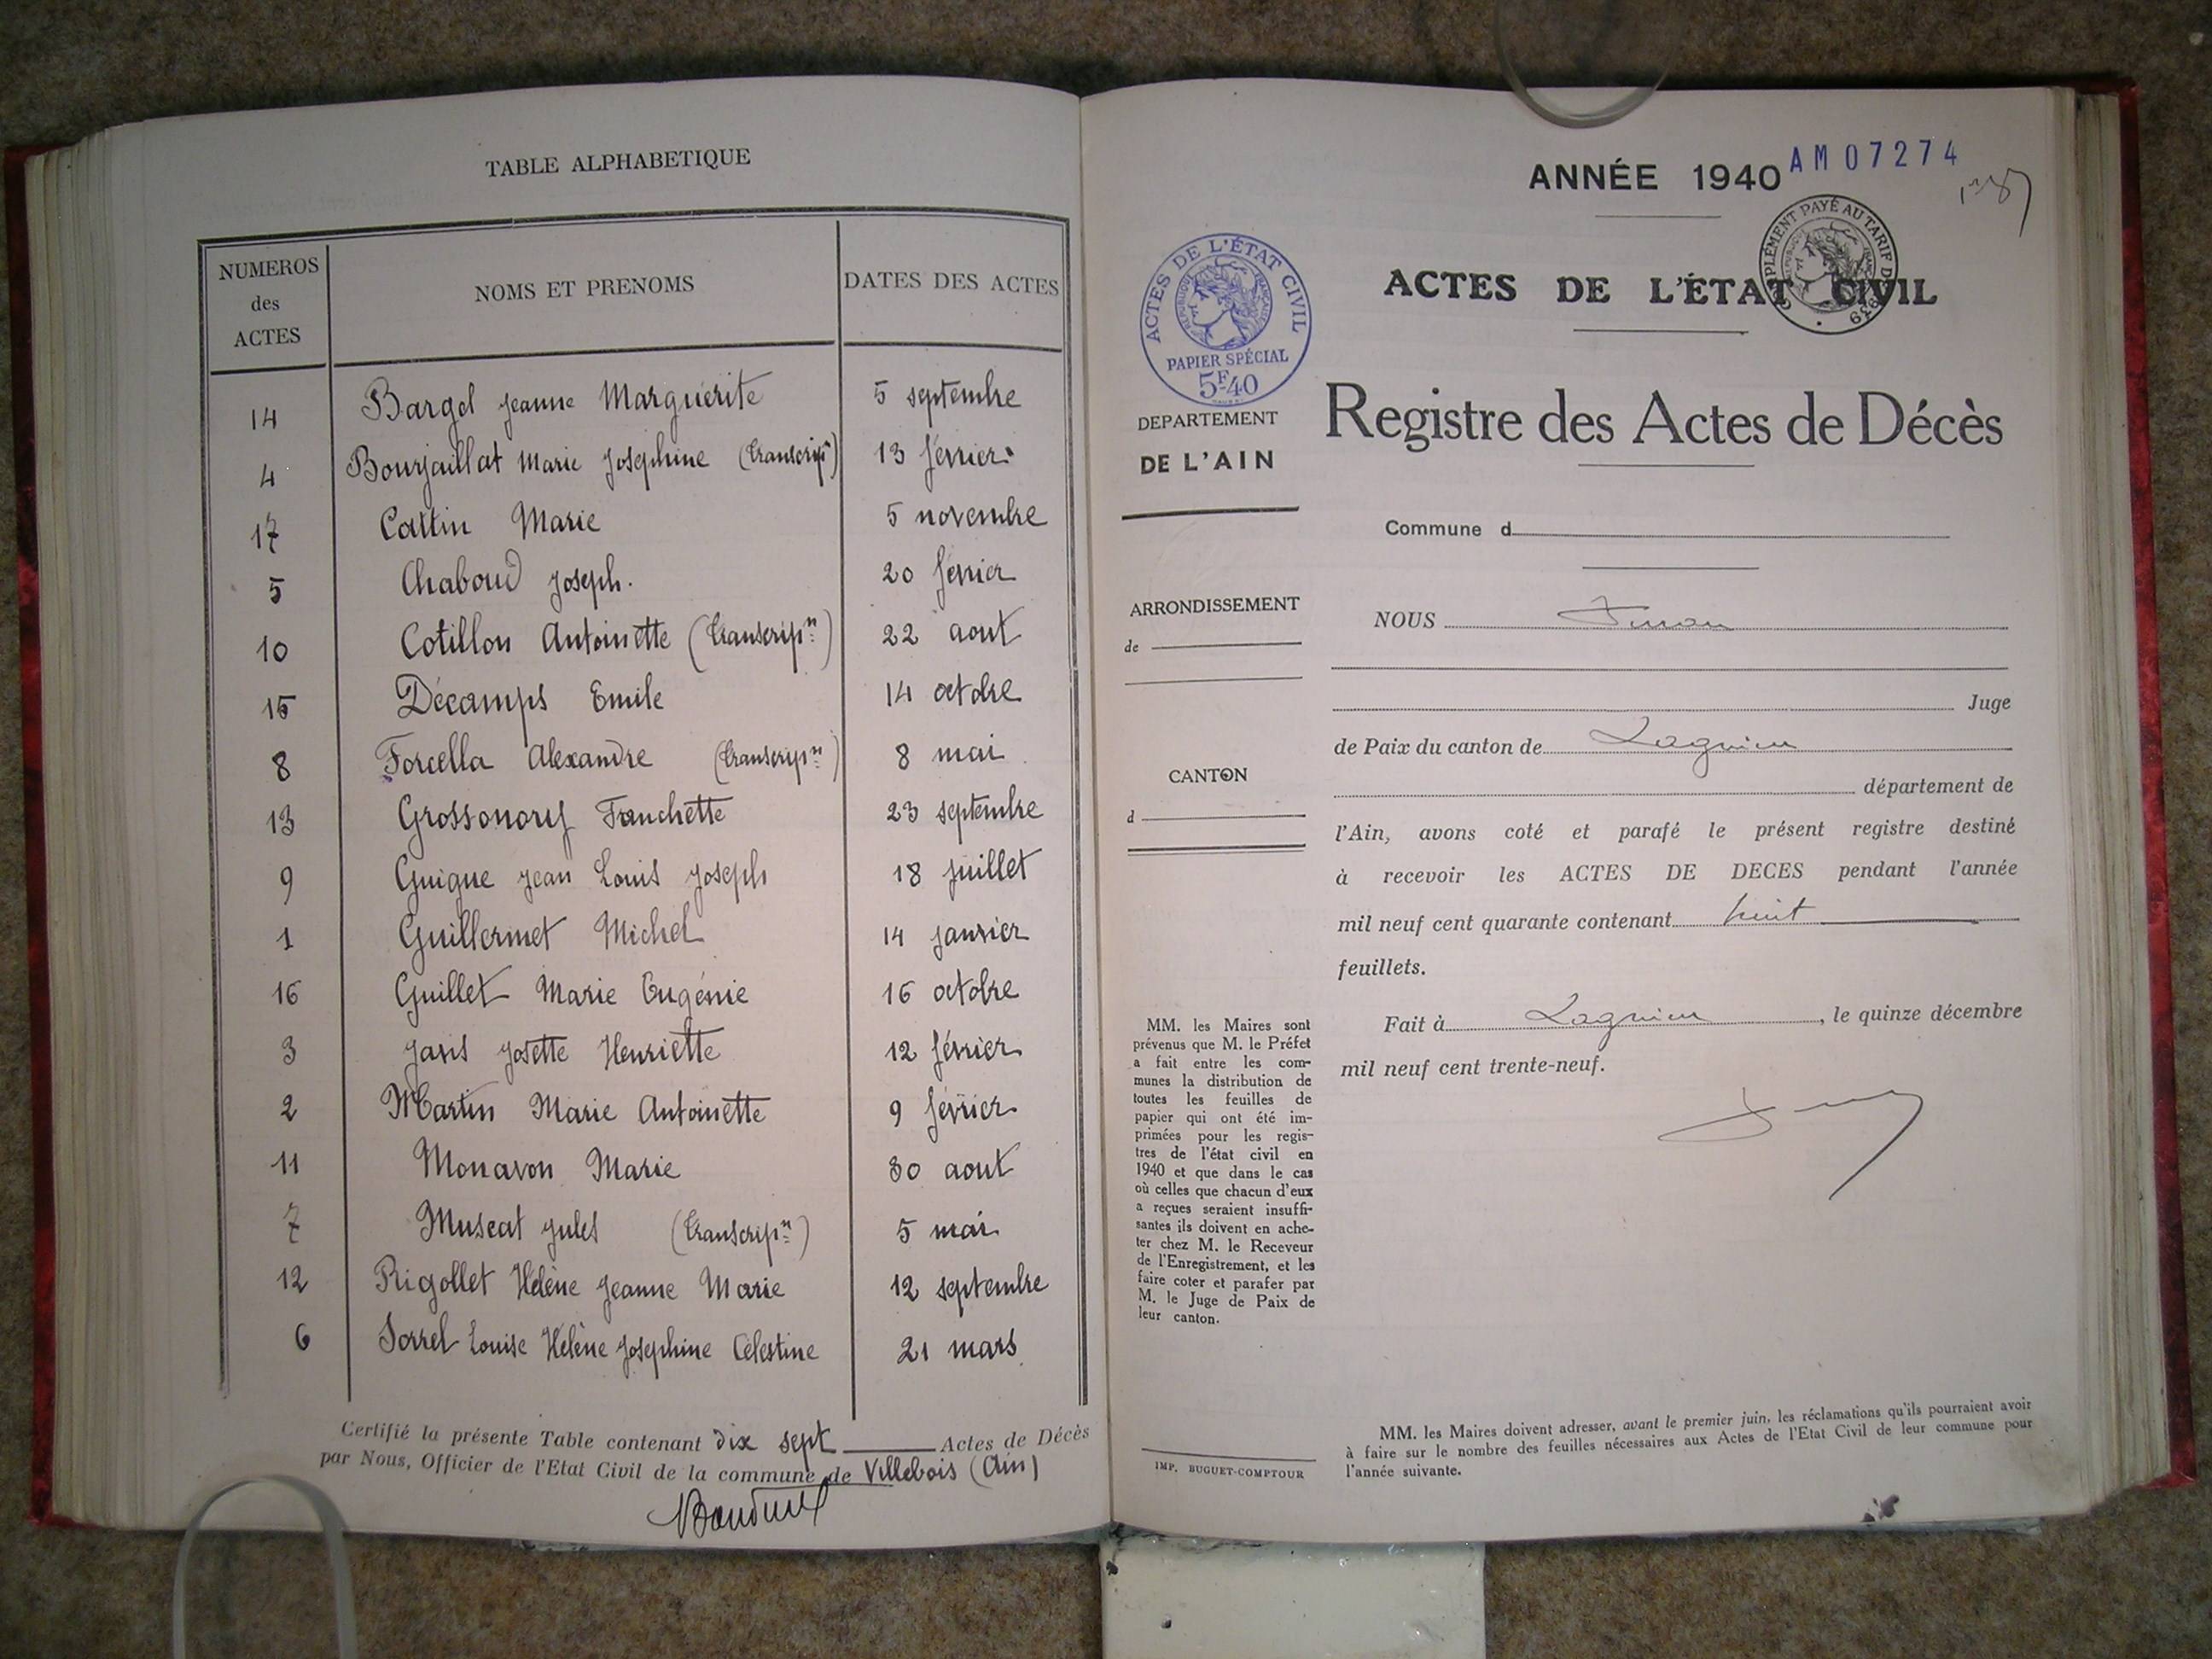 TABLE ALPHABETIQUE
NUMEROS des ACTES
NOMS ET PRENOMS
DATES DES ACTES
14 Bargel Jeanne Marguerite 5 septembre
4 Bourjaillat Marie Joséphine (transcript) 13 février
17 Cattin Marie 5 novembre
5 Chaboud Joseph. 20 février
10 Cotillon Antoinette (transcripn) 22 aout
15 Décamps Emile 14 octobre
8 Forcella Alexandre (transcripn) 8 mai
13 Franchette 23 septembre
9 Guigue Jean Louis Joseph 18 juillet
1 Guillermet Michel 14 janvier
16 Guillet Marie Eugénie 16 octobre
3 Josette Henriette 12 février
2 Martin Marie Antoinette 9 février
11 Monavon Marie 30 aout
7 Muscat Jules (transcripn) 5 mai
12 Rigollet Hélène Jeanne Marie 12 septembre
6 Sorrel Louise Hélène Joséphine Célestine 21 mars
Certifié la présente Table contenant dix sept Actes de Décès
par Nous, Officier de l'Etat Civil de la commune de Villebois (Ain)
ANNÉE 1940
AM07274
ACTES DE L'ÉTAT CIVIL
COMPLÉMENT PAYÉ AU TARIF DE 1939
ACTES DE L'ÉTAT CIVIL
RÉPUBLIQUE FRANÇAISE
PAPIER SPÉCIAL
5F40
DEPARTEMENT
DE L'AIN
ARRONDISSEMENT
de
CANTON
d
MM. les Maires sont
prévenus que M. le Préfet
a fait entre les com-
munes la distribution de
toutes les feuilles de
papier qui ont été im-
primées pour les regis-
tres de l'état civil en
1940 et que dans le cas
où celles que chacun d'eux
a reçues seraient insuffi-
santes ils doivent en ache-
ter chez M. le Receveur
de l'Enregistrement, et les
faire coter et parafer par
M. le Juge de Paix de
leur canton.
IMP. BUGUET-COMPTOUR
Registre des Actes de Décès
Commune d
NOUS
Juge
de Paix du canton de Lagnieu
département de
l'Ain, avons coté et parafé le présent registre destiné
à recevoir les ACTES DE DECES pendant l'année
mil neuf cent quarante contenant huit
feuillets.
Fait à Lagnieu, le quinze décembre
mil neuf cent trente-neuf.
MM. les Maires doivent adresser, avant le premier juin, les réclamations qu'ils pourraient avoir
à faire sur le nombre des feuilles nécessaires aux Actes de l'Etat Civil de leur commune pour
l'année suivante.